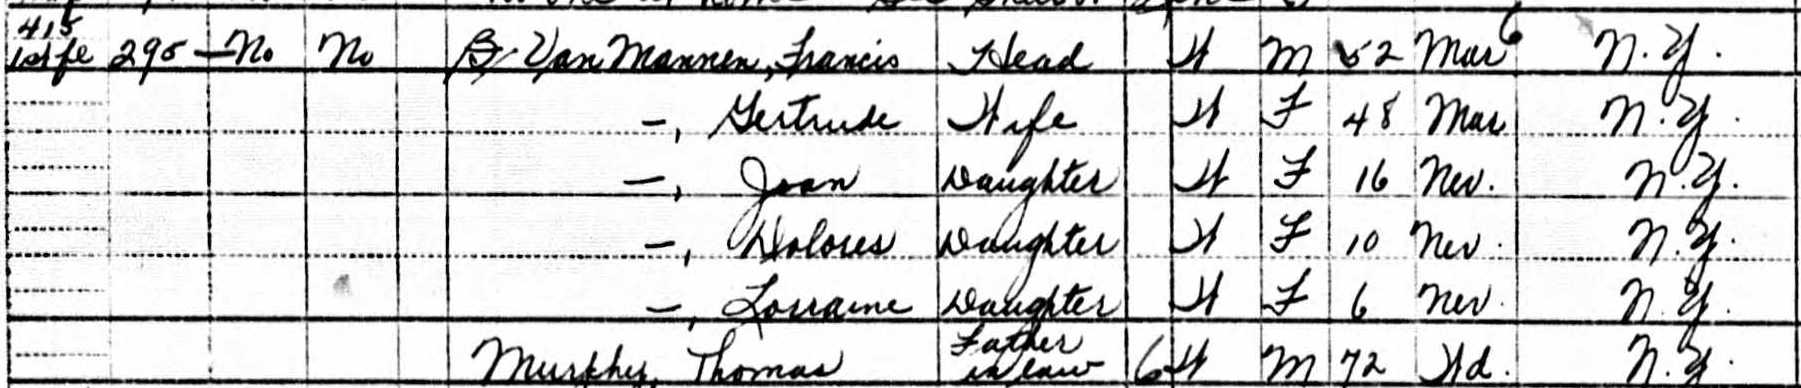 415
1st fl 295 — No No Van Mannen, Francis Head W M 52 Mar 6 N.Y.
—, Gertrude Wife W F 48 Mar N.Y.
—, Joan Daughter W F 16 Nev. N.Y.
—, Dolores Daughter W F 10 Nev. N.Y.
—, Lorraine Daughter W F 6 Nev. N.Y.
Murphy, Thomas Father in law 6 W M 72 Wd. N.Y.